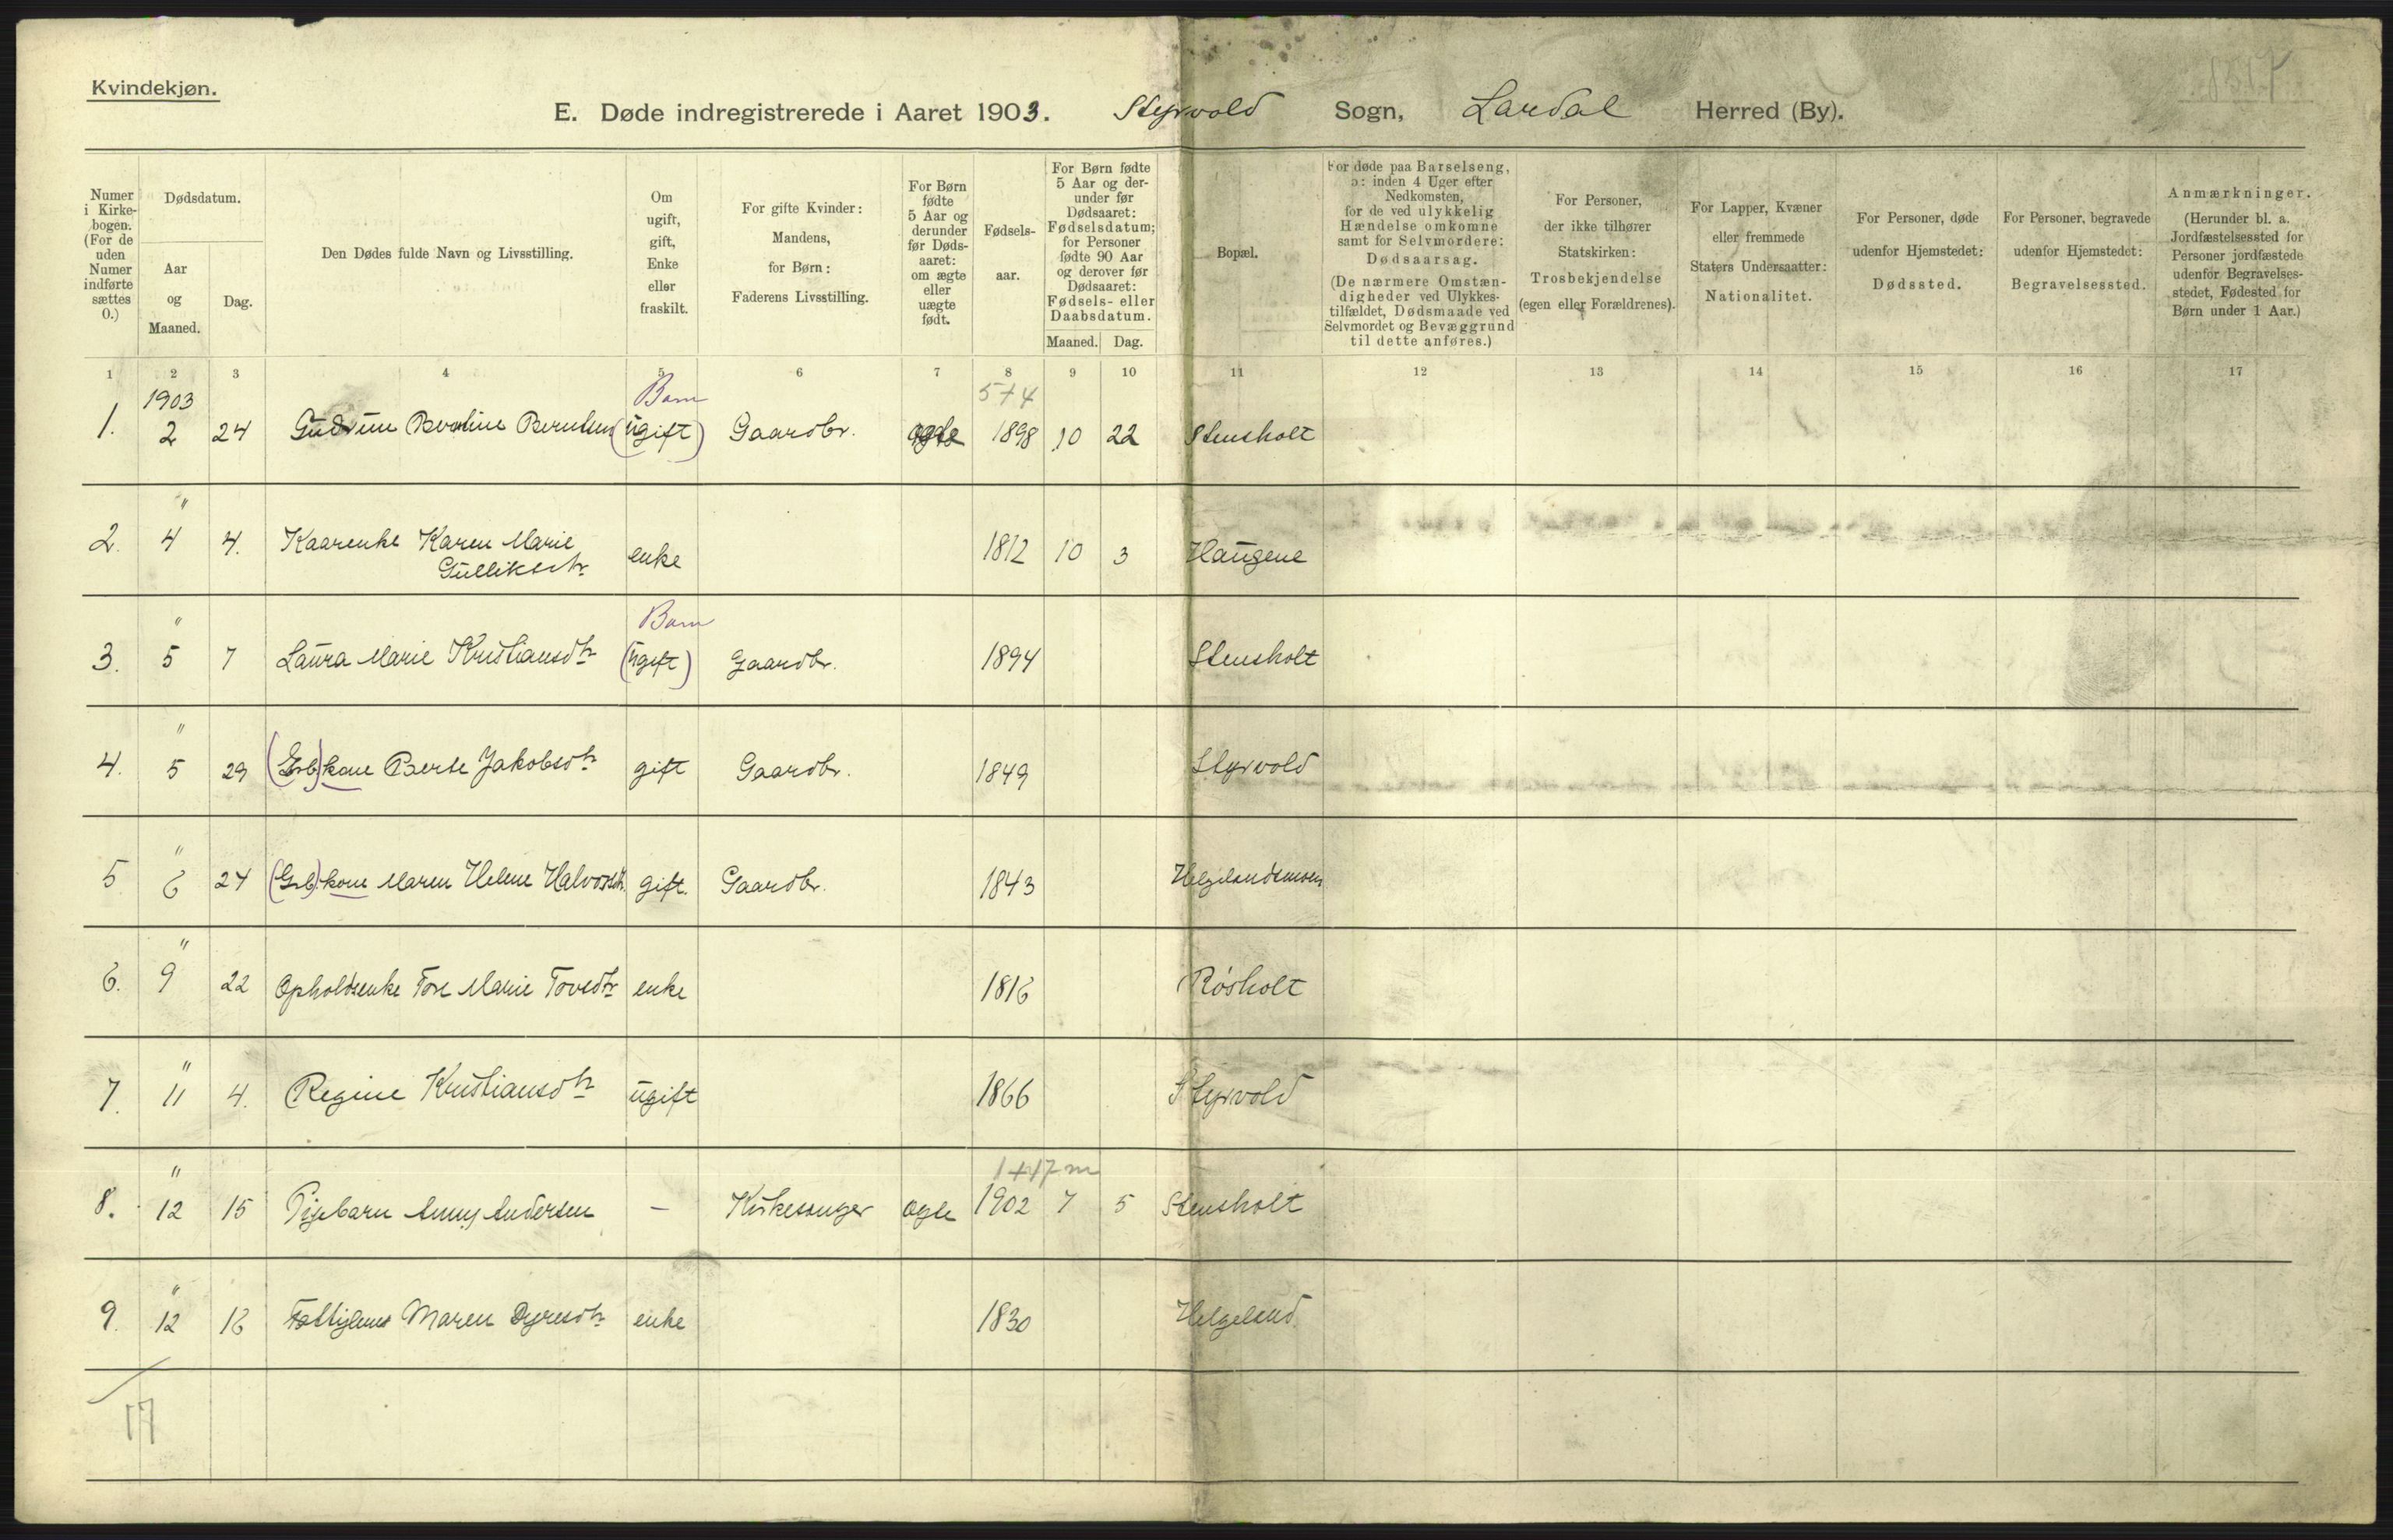 Kvindekjøn.
E. Døde indregistrerede i Aaret 1903. Styrvold Sogn, Lardal Herred (By).
Numer i Kirkebogen. (For de uden Numer indførte sættes 0.)
Dødsdatum.
Aar og Maaned.
Dag.
Den Dødes fulde Navn og Livsstilling.
Om ugift, gift, Enke eller fraskilt.
For gifte Kvinder: Mandens, for Børn: Faderens Livsstilling.
For Børn fødte 5 Aar og derunder før Dødsaaret: om ægte eller uægte født.
Fødselsaar.
For Børn fødte 5 Aar og derunder før Dødsaaret: Fødselsdatum; for Personer fødte 90 Aar og derover før Dødsaaret: Fødsels- eller Daabsdatum.
Maaned. Dag.
Bopæl.
For døde paa Barselseng, ɔ: inden 4 Uger efter Nedkomsten, for de ved ulykkelig Hændelse omkomne samt for Selvmordere: Dødsaarsag.
(De nærmere Omstændigheder ved Ulykkestilfældet, Dødsmaade ved Selvmordet og Bevæggrund til dette anføres.)
For Personer, der ikke tilhører Statskirken: Trosbekjendelse (egen eller Forældrenes).
For Lapper, Kvæner eller fremmede Staters Undersaatter: Nationalitet.
For Personer, døde udenfor Hjemstedet: Dødssted.
For Personer, begravede udenfor Hjemstedet: Begravelsessted.
Anmærkninger. (Herunder bl. a. Jordfæstelsessted for Personer jordfæstede udenfor Begravelsesstedet, Fødested for Børn under 1 Aar.)
1 2 3 4 5 6 7 8 9 10 11 12 13 14 15 16 17
1903 Barn 5+4
1. 2 24 Gudrun Berntsen (ugift) Gaardbr. ægte 1898 10 22 Stensholt
"
2. 4 4. Kaarenke Karen Marie enke 1812 10 3 Haugene
Gulliksdtr
" Barn
3. 5 7 Laura Marie Kristiansdtr (ugift) Gaardbr. 1894 Stensholt
"
4. 5 29 (Grb)kone Berte Jakobsdtr gift Gaardbr. 1849 Styrvold
"
5 6 24 (Grb).kone Maren Helene Halvorsdtr. gift. Gaardbr. 1843 Helgelandsmoen
"
6. 9 22 Opholdsenke Tore Marie Tovsdtr enke 1816 Røsholt
"
7. 11 4. Regine Kristiansdtr ugift 1866 Styrvold
" 1+17 m
8. 12 15 Pigebarn Anny Andersen — Kirkesanger ægte 1902 7 5 Stensholt
"
9. 12 16 Fattiglem Maren Dyresdtr enke 1830 Helgeland.
17